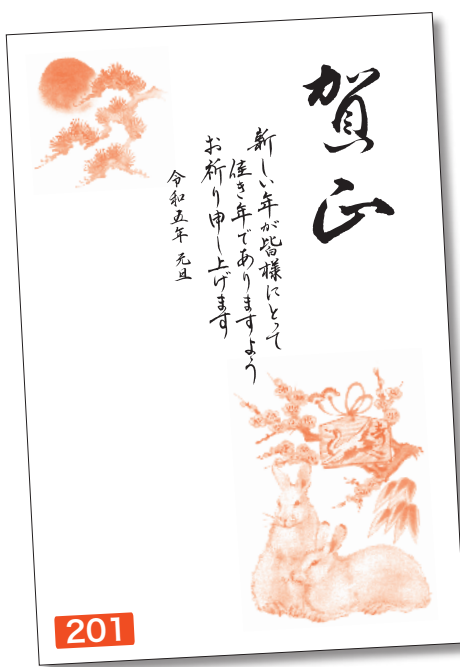 賀正
新しい年が皆様にとって
佳き年でありますよう
お祈り申し上げます
令和五年 元旦
201